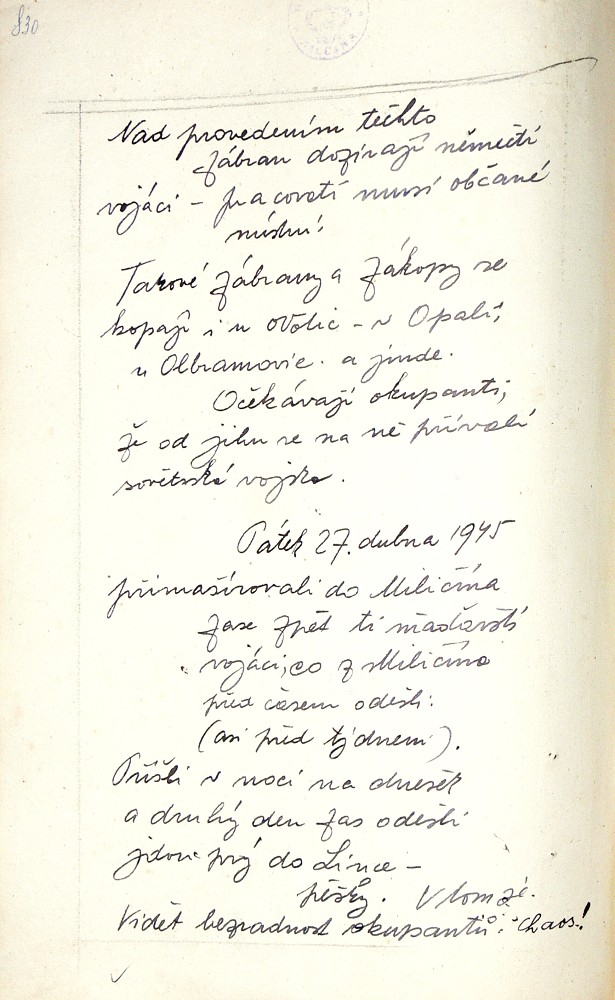 830
Nad provedením těchto
zábran dozírají němečtí
vojáci – pracovati musí občané
místní!
Takové zábrany a zákopy se
kopají i u Votic – v Opalí,
u Olbramovic. a jinde.
Očekávají okupanti,
že od jihu se na ně přivalí
sovětská vojska.
Pátek 27. dubna 1945
přimašírovali do Miličína
zase zpět ti maďarští
vojáci, co z Miličína
před časem odešli.
(asi před týdnem).
Přišli v noci na dnešek
a druhý den zas odešli
jdou prý do Lince –
pěšky. V tom je.
Vidět bezradnost okupantů. Chaos!